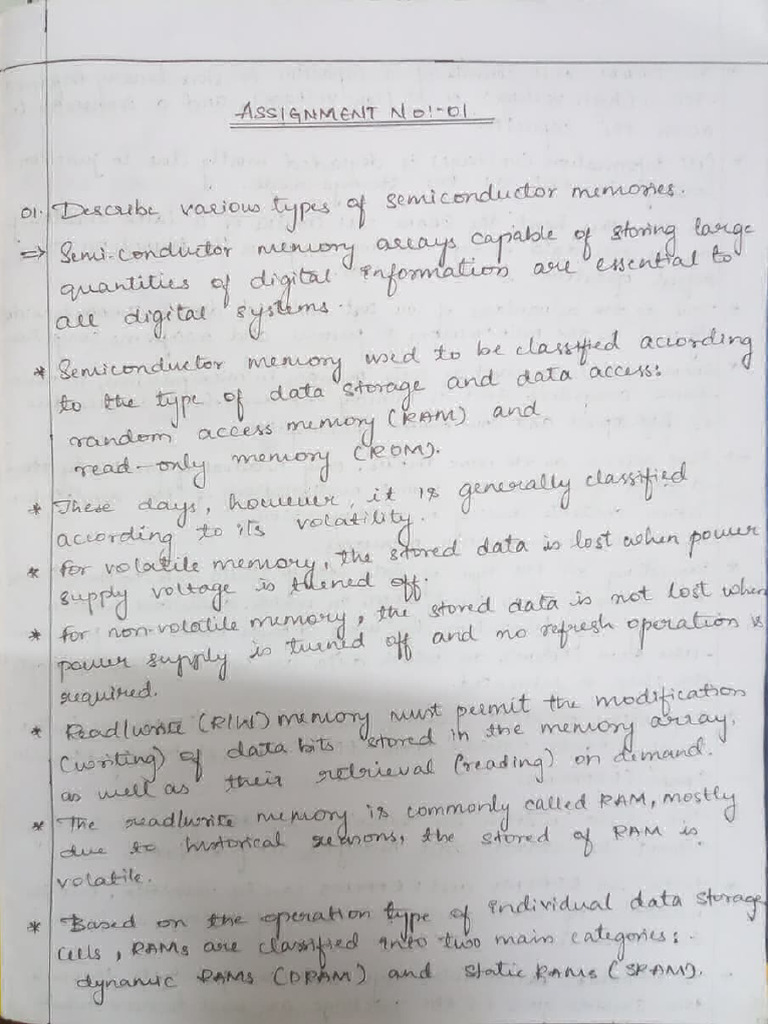 ASSIGNMENT NO:-01
01. Describe various types of semiconductor memories.
⇒ Semi-conductor memory arrays capable of storing large
quantities of digital information are essential to
all digital systems.
* Semiconductor memory used to be classified according
to the type of data storage and data access:
random access memory (RAM) and
read-only memory (ROM).
* These days, however, it is generally classified
according to its volatility.
* for volatile memory, the stored data is lost when power
supply voltage is turned off.
* for non-volatile memory, the stored data is not lost when
power supply is turned off and no refresh operation is
required.
* Read/write (R/W) memory must permit the modification
(writing) of data bits stored in the memory array,
as well as their retrieval (reading) on demand.
* The read/write memory is commonly called RAM, mostly
due to historical reasons, the stored of RAM is
volatile.
* Based on the operation type of individual data storage
cells, RAMs are classified into two main categories:
dynamic RAMs (DRAM) and static RAMs (SRAM).